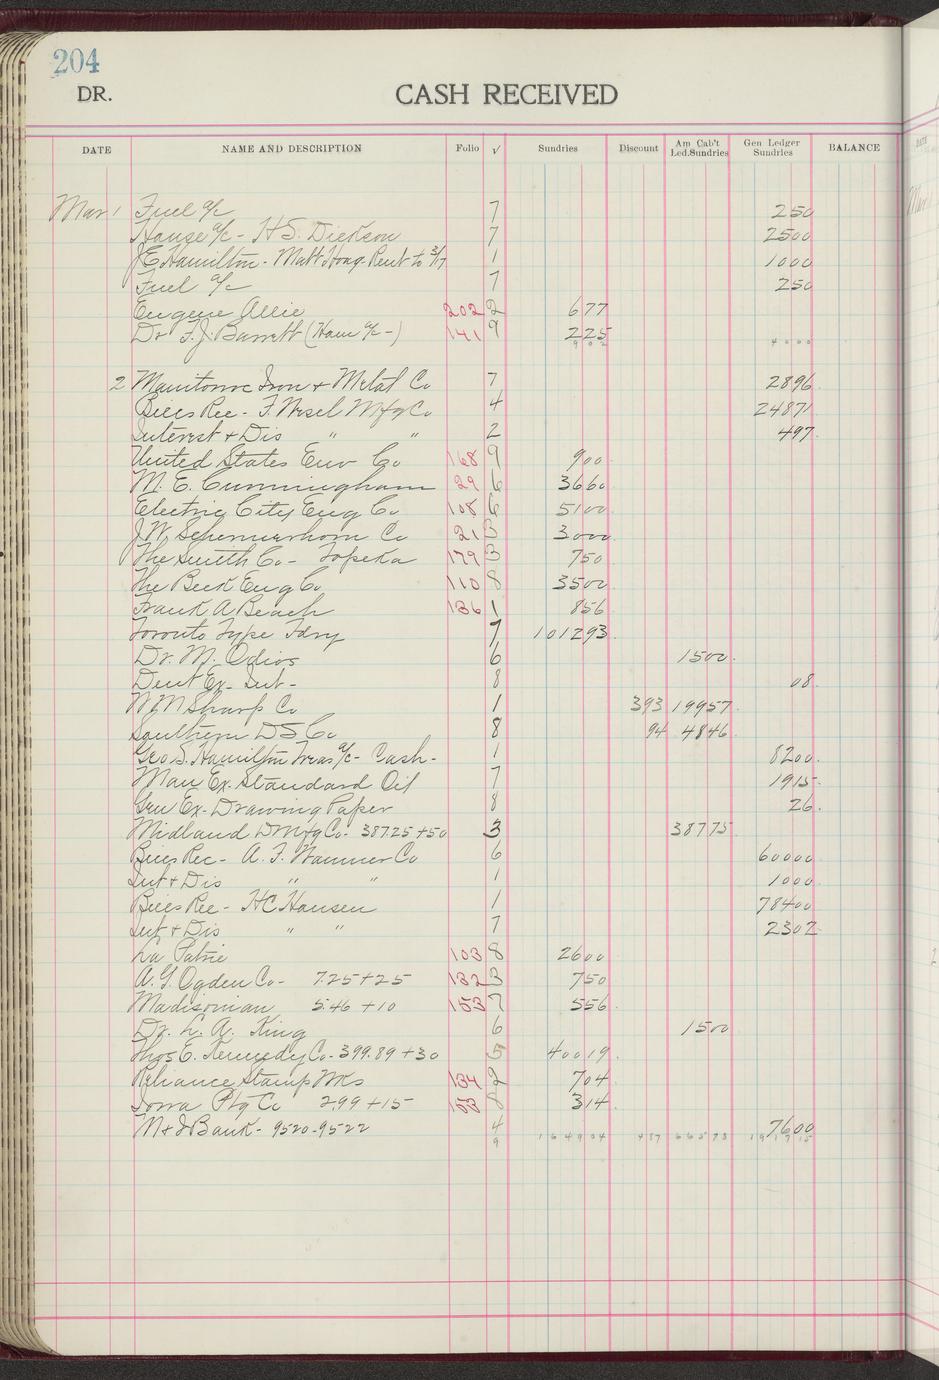 204
DR. CASH RECEIVED
DATE NAME AND DESCRIPTION Folio √ Sundries Discount Am Cab't Led.Sundries Gen Ledger Sundries BALANCE
Mar 1 Fuel a/c 7 250
House a/c - H S. Dickson 7 2500
J E Hamilton - Matt Hoag. Rent to 3/17 1 1000
Fuel a/c 7 250
Eugene Allie 202 2 677
Dr F. J. Barrett (Ham a/c -) 141 9 225
902 4000
2 Manitowoc Iron & Metal Co 7 2896
Bills Rec - F. Wesel Mfg Co 4 24871
Interest & Dis " " 2 497
United States Env Co 168 9 900
M. E. Cunningham 29 6 3660
Electric City Eng Co 108 6 5100
J. W. Schermerhorn Co 21 3 3000
The Smith Co - Topeka 179 3 750
The Beck Eng Co 110 8 3500
Frank A Beach 136 1 856
Toronto Type Fdry 7 101293
Dr. M. Odios 6 1500
Dent Ex - Int - 8 08
W M Sharp Co 1 393 19957
Southern D S Co 8 94 4846
Geo S. Hamilton Treas a/c - Cash - 1 8200
Man Ex. Standard Oil 7 1915
Gen Ex - Drawing Paper 8 26
Midland D Mfg Co - 387.25 + 50 3 38775
Bills Rec - A. F. Wanner Co 6 60000
Int & Dis " " 1 1000
Bills Rec - H C Hansen 1 78400
Int & Dis " " 7 2302
La Patrie 103 8 2600
A. G. Ogden Co - 7.25 + 25 132 3 750
Madisonian 5.46 + 10 153 7 556
Dr. L. A. King 6 1500
Thos E. Kennedy Co - 399.89 + 30 5 40019
Reliance Stamp Wks 134 2 704
Iowa Ptg Co 2.99 + 15 153 8 314
M & J Bank - 9520 - 9522 4 7600
9 164904 487 66578 191915